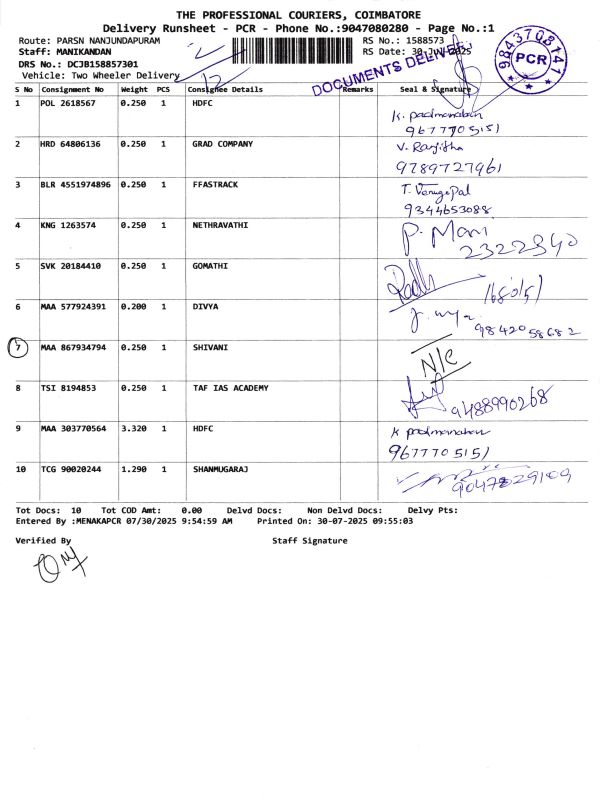 THE PROFESSIONAL COURIERS, COIMBATORE
Delivery Runsheet - PCR - Phone No.:9047080280 - Page No.:1
Route: PARSN NANJUNDAPURAM
RS No.: 1588573
Staff: MANIKANDAN
RS Date: 30-Jul-2025
DRS No.: DCJB158857301
Vehicle: Two Wheeler Delivery
DOCUMENTS DELIVE
9843703141
PCR
S No Consignment No Weight PCS Consignee Details Remarks Seal & Signature
1 POL 2618567 0.250 1 HDFC K. padmanaban
9677705151
2 HRD 64806136 0.250 1 GRAD COMPANY V. Ranjitha
9789727961
3 BLR 4551974896 0.250 1 FFASTRACK T. Venugopal
9344653088
4 KNG 1263574 0.250 1 NETHRAVATHI P. Mani
2322340
5 SVK 20184410 0.250 1 GOMATHI
6 MAA 577924391 0.200 1 DIVYA
9842058682
7 MAA 867934794 0.250 1 SHIVANI N/C
8 TSI 8194853 0.250 1 TAF IAS ACADEMY
9488990268
9 MAA 303770564 3.320 1 HDFC K padmanaban
9677705151
10 TCG 90020244 1.290 1 SHANMUGARAJ
Tot Docs: 10 Tot COD Amt: 0.00 Delvd Docs: Non Delvd Docs: Delvy Pts:
Entered By :MENAKAPCR 07/30/2025 9:54:59 AM Printed On: 30-07-2025 09:55:03
Verified By Staff Signature